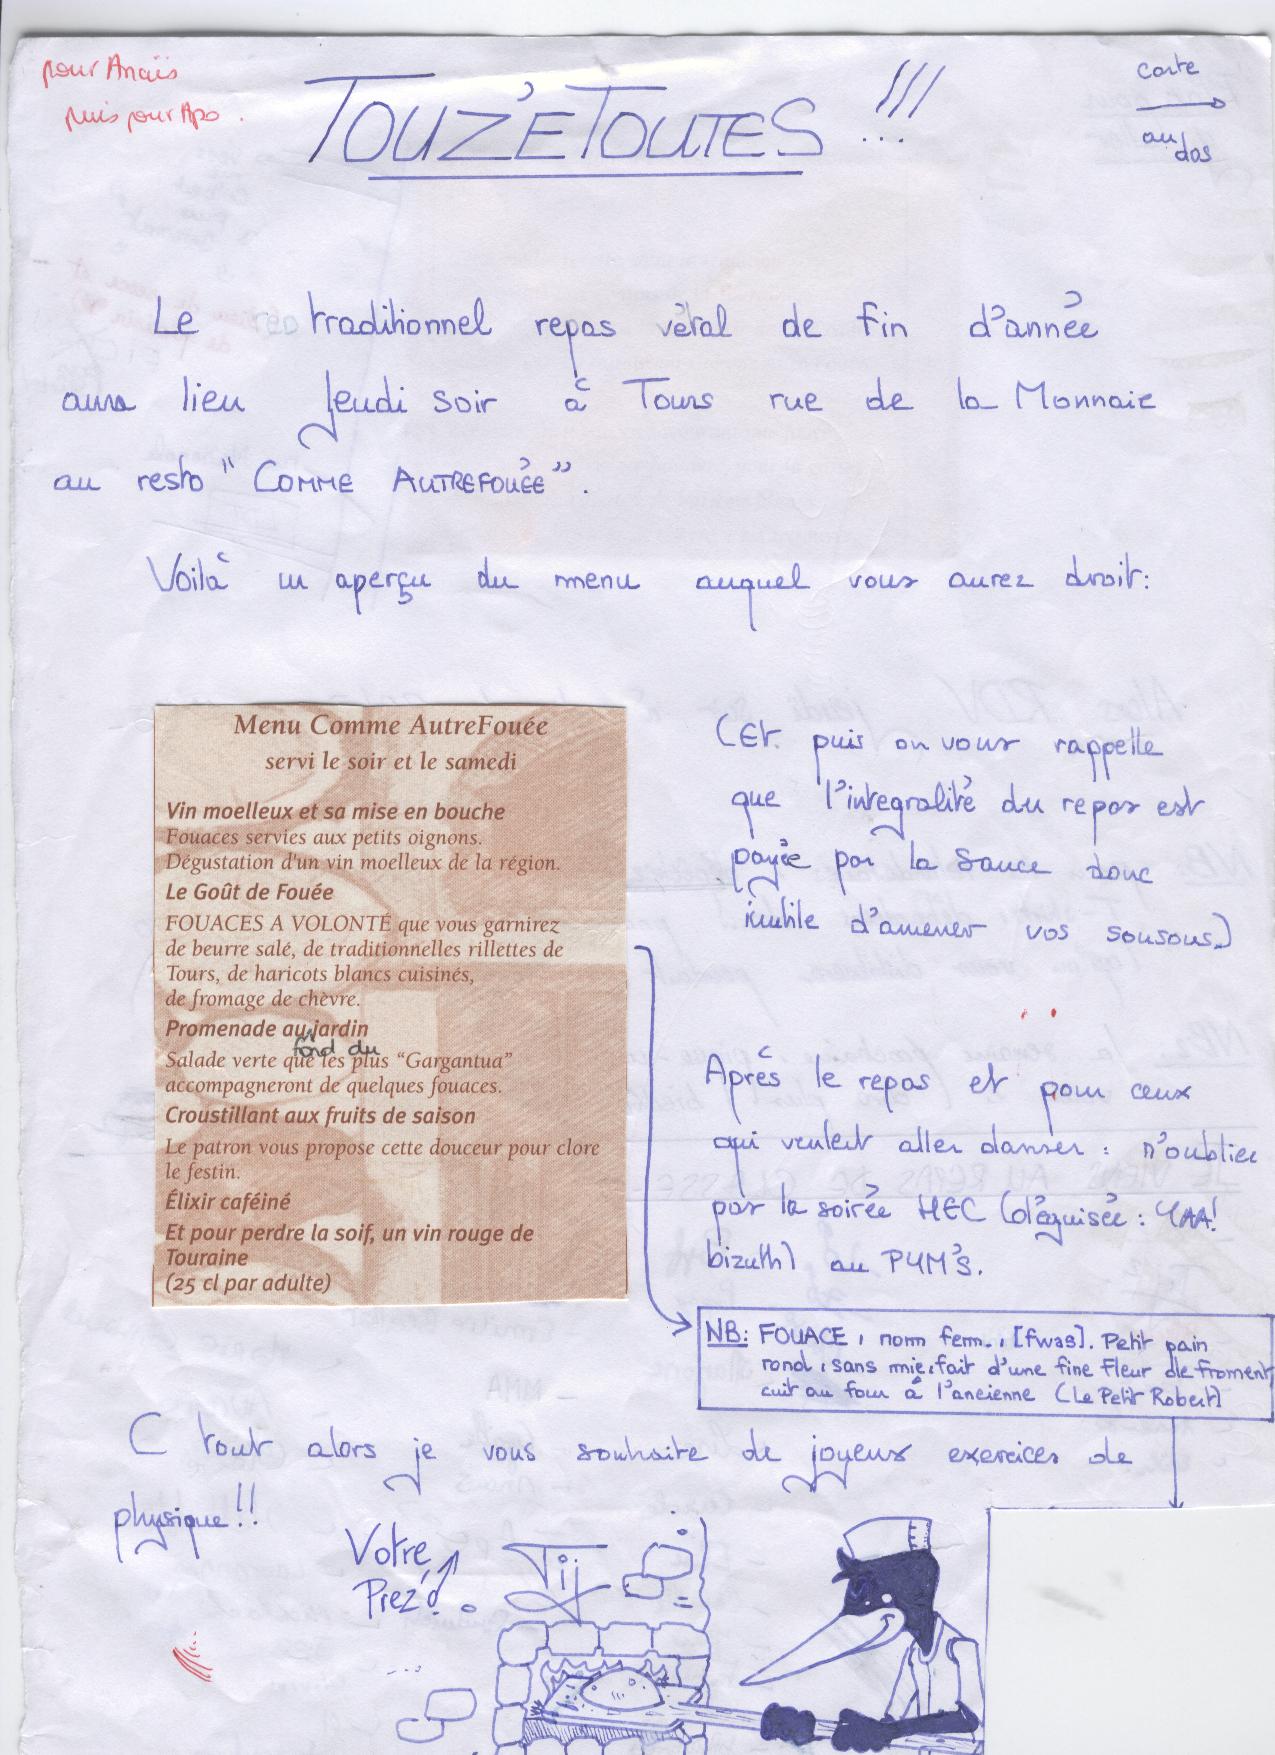 pour Anaïs
puis pour Apo.
TOUZ'ETOUTES !!!
...
carte
au
dos
Le traditionnel repas vétal de fin d'année
aura lieu Jeudi soir à Tours rue de la Monnaie
au resto "COMME AUTREFOUÉE".
Voilà un aperçu du menu auquel vous aurez droit:
Menu Comme AutreFouée
servi le soir et le samedi
Vin moelleux et sa mise en bouche
Fouaces servies aux petits oignons.
Dégustation d'un vin moelleux de la région.
Le Goût de Fouée
FOUACES A VOLONTÉ que vous garnirez
de beurre salé, de traditionnelles rillettes de
Tours, de haricots blancs cuisinés,
de fromage de chèvre.
Promenade au jardin
fond du
Salade verte que les plus "Gargantua"
accompagneront de quelques fouaces.
Croustillant aux fruits de saison
Le patron vous propose cette douceur pour clore
le festin.
Élixir caféiné
Et pour perdre la soif, un vin rouge de
Touraine
(25 cl par adulte)
(Et puis on vous rappelle
que l'intégralité du repas est
payée par la sauce donc
inutile d'amener vos sousous.)
Après le repas et pour ceux
qui veulent aller danser : n'oubliez
pas la soirée HEC (déguisée : YAA!
bizuth) au PYM'S.
NB: FOUACE, nom fem., [fwas]. Petit pain
rond, sans mie, fait d'une fine fleur de froment,
cuit au four à l'ancienne (Le Petit Robert)
C tout alors je vous souhaite de joyeux exercices de
physique!!
Votre
Prez'
Tij